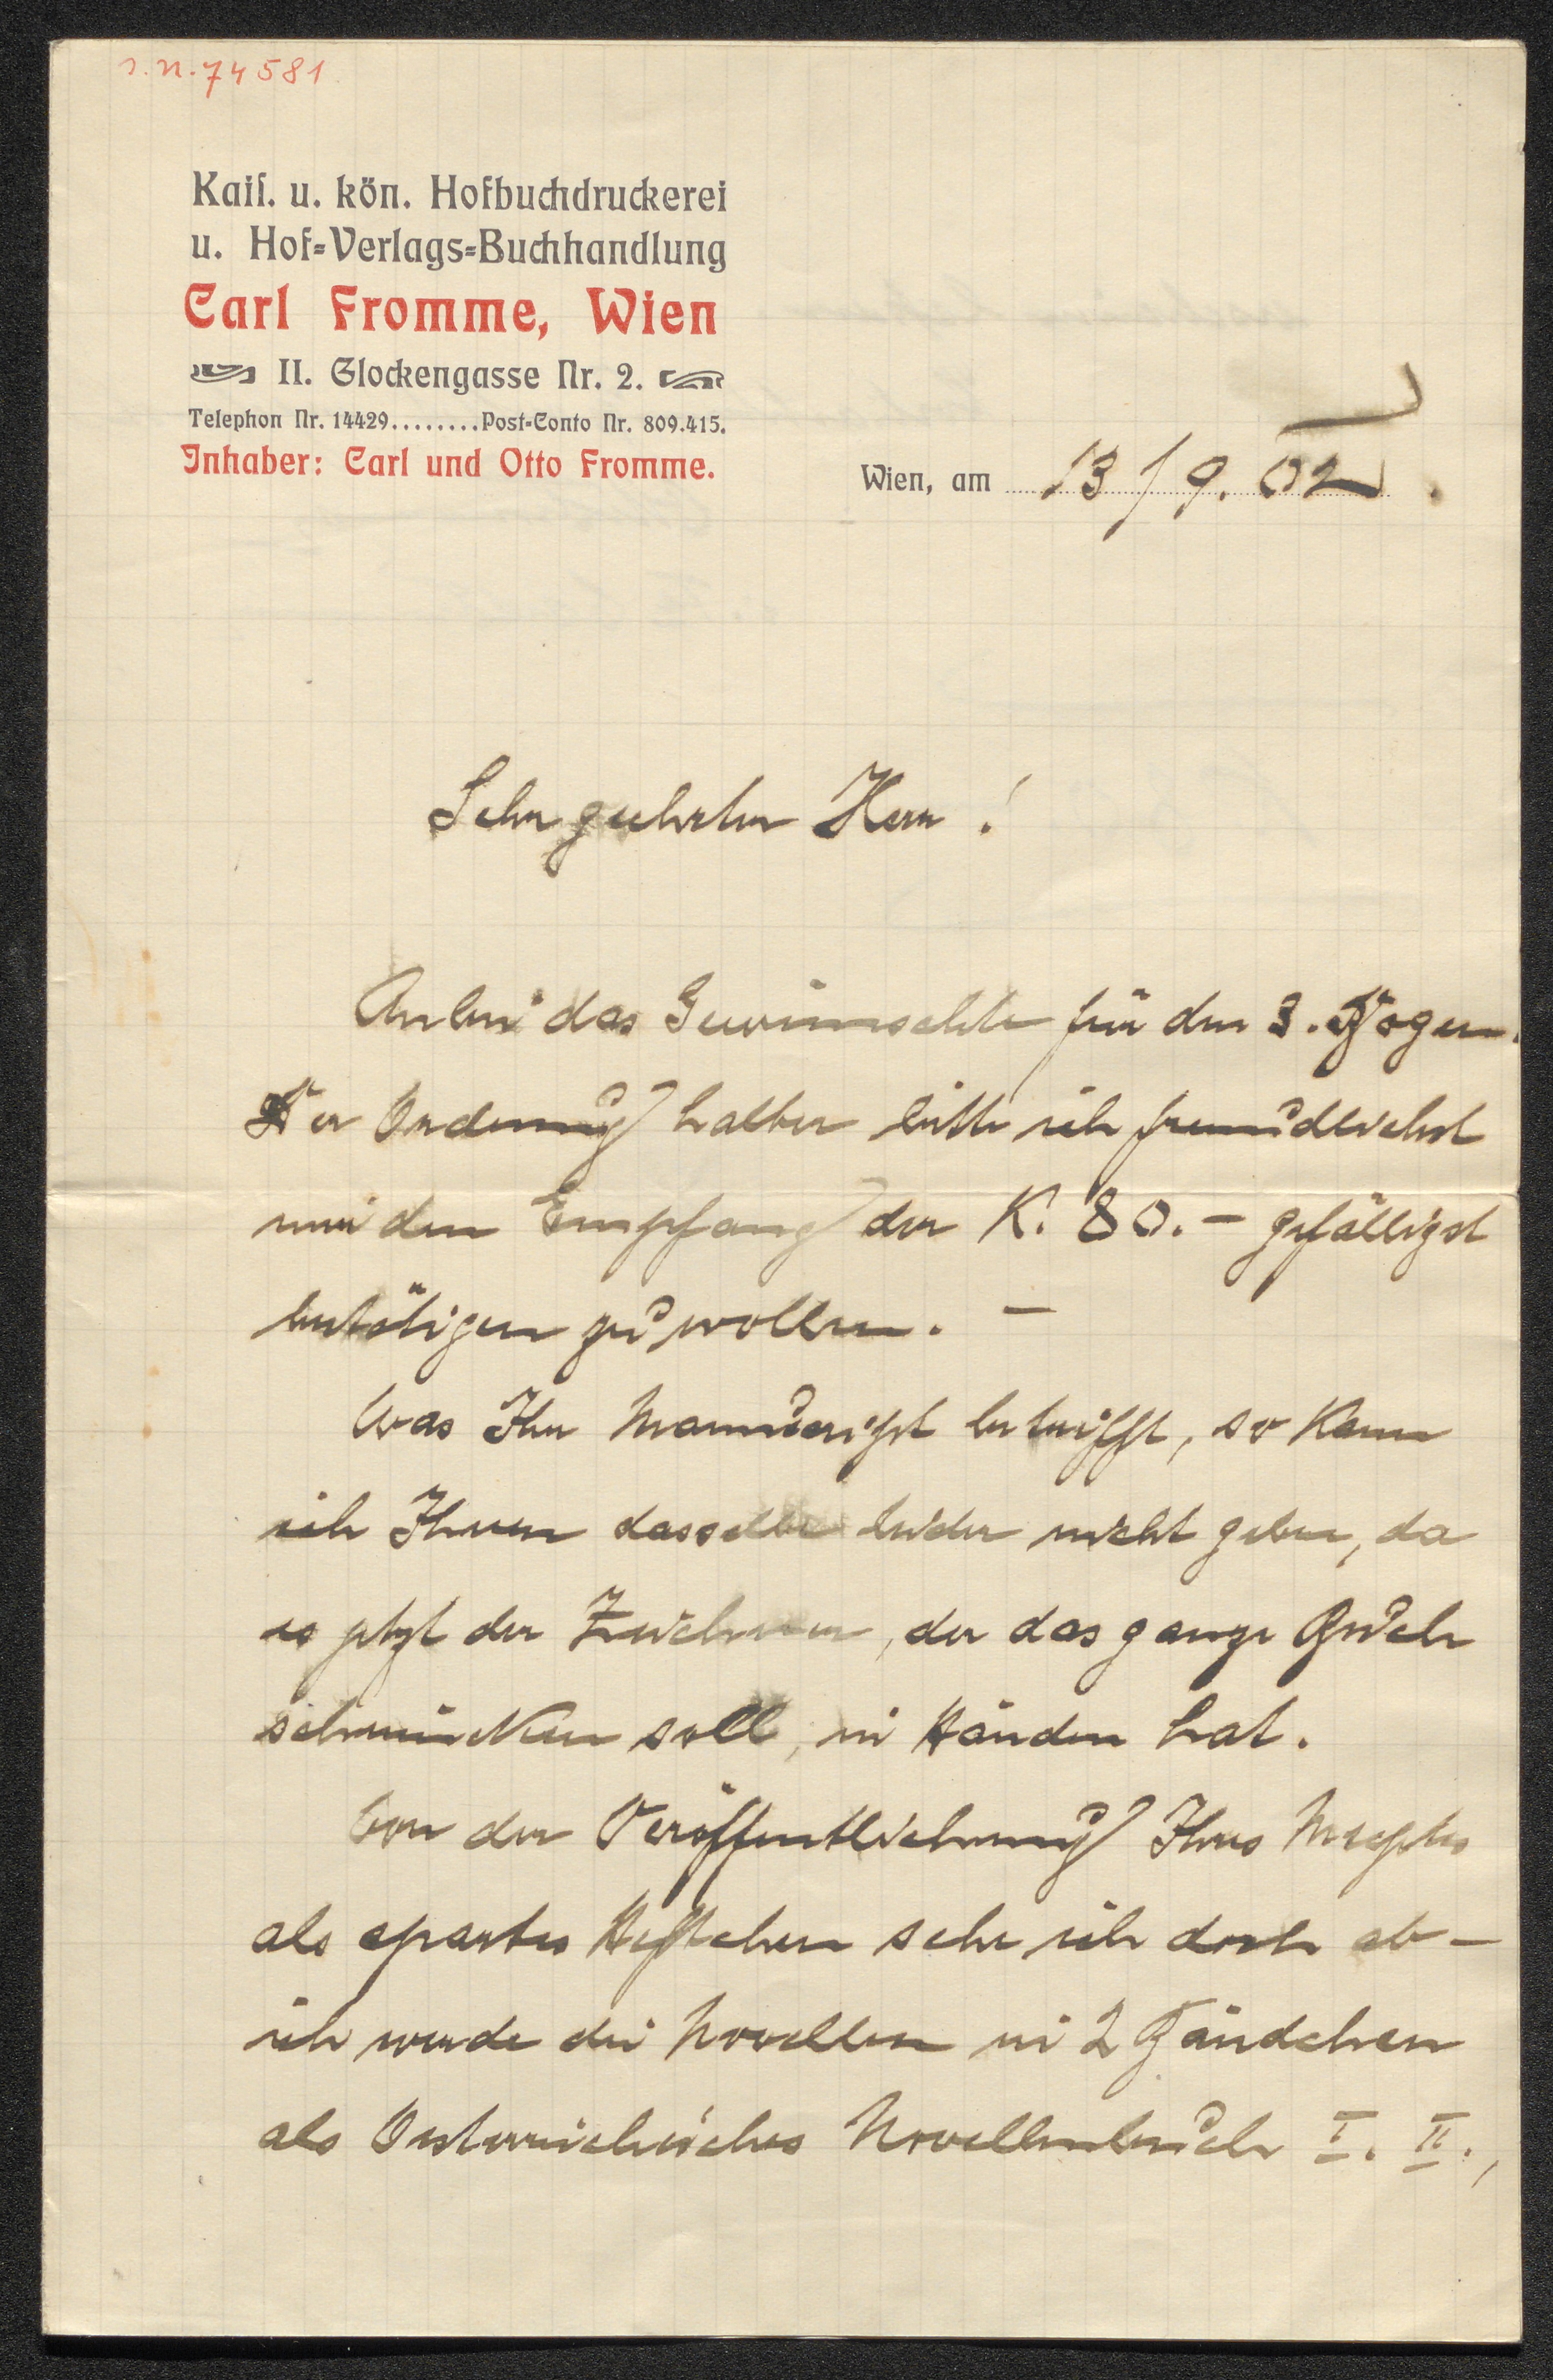 I.N. 74581
Kais. u. kön. Hofbuchdruckerei
u. Hof-Verlags-Buchhandlung
Carl Fromme, Wien
II. Glockengasse Nr. 2.
Telephon Nr. 14429........Post-Conto Nr. 809.415.
Inhaber: Carl und Otto Fromme.
Wien, am 13/9. 02.
Sehr geehrter Herr!
Anbei das Gewünschte für den 3. Bogen.
Der Ordnung halber bitte ich freundlichst
mir den Empfang der K. 80.– gefälligst
bestätigen zu wollen. –
Was Ihr Manuscript betrifft, so kann
ich Ihnen dasselbe leider nicht geben, da
es jetzt der Zeichner, der das ganze Buch
schmücken soll, in Händen hat.
Von der Veröffentlichung Ihres Mscptes
als apartes Heftchen sehe ich doch ab –
ich werde die Novellen in 2 Bändchen
als Oesterreichisches Novellenbuch I. II.,